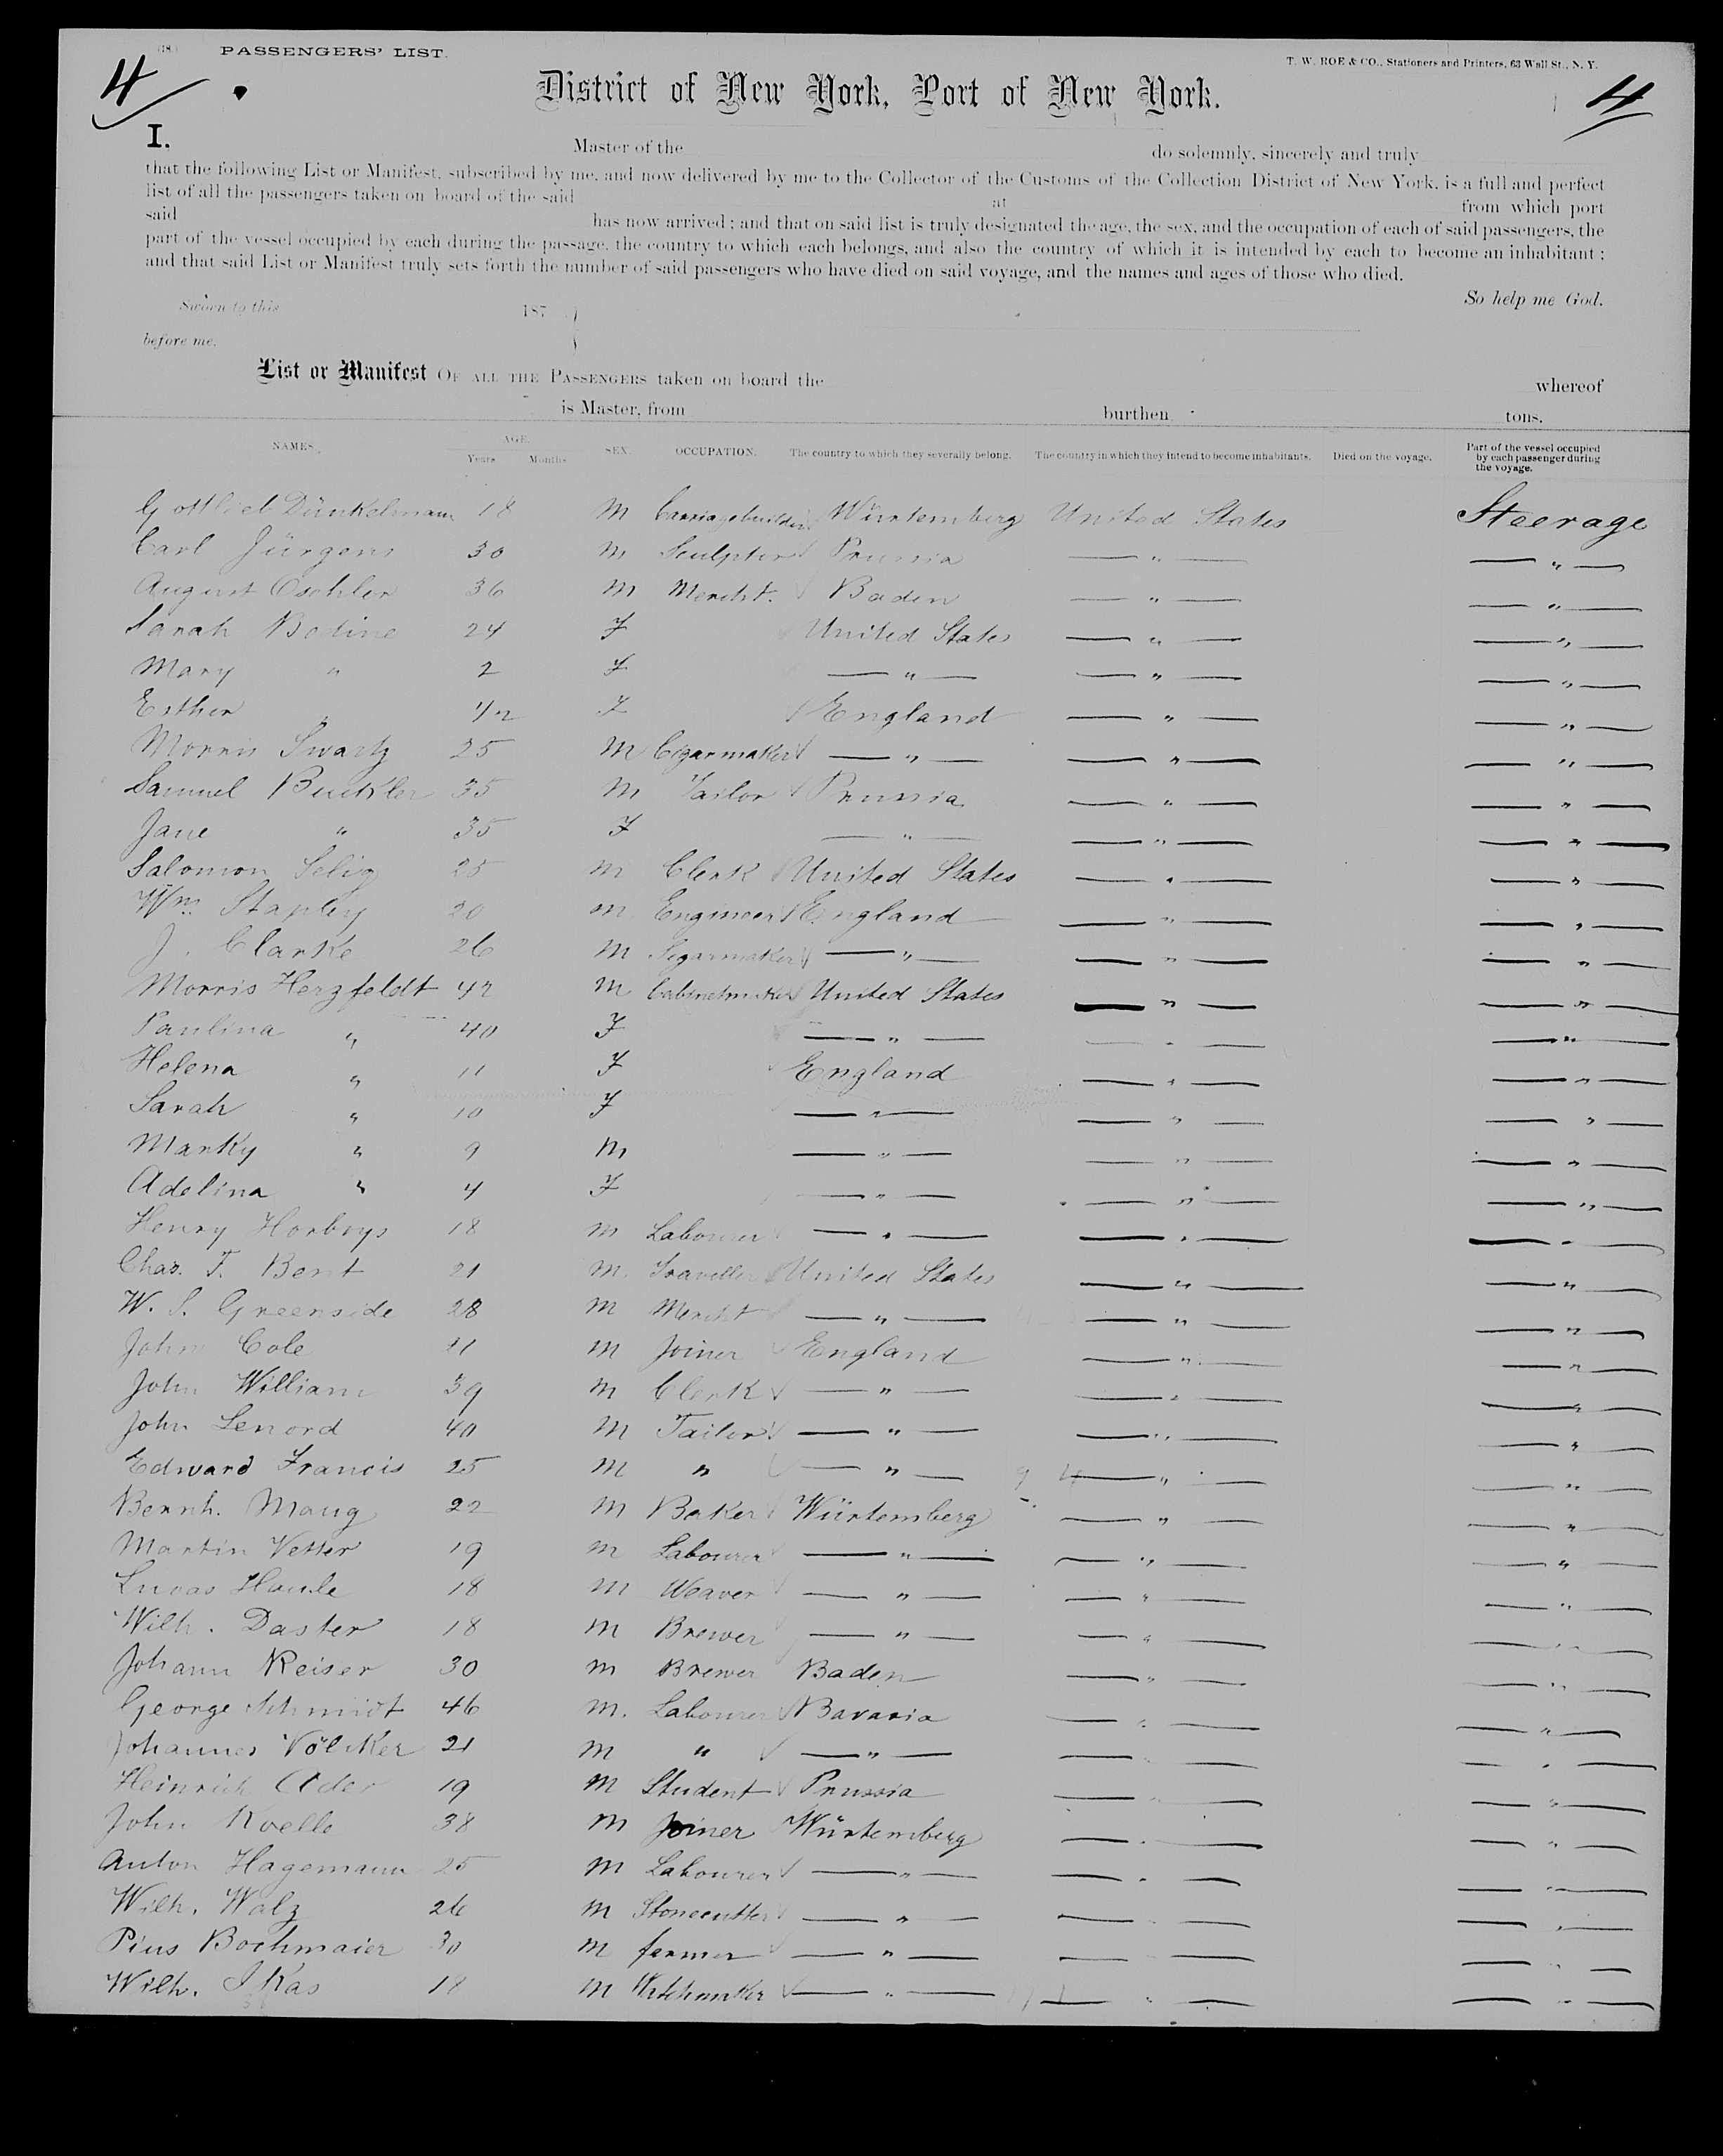 (18.) PASSENGERS' LIST.
T. W. ROE & CO., Stationers and Printers, 63 Wall St., N. Y.
4 4
District of New York, Port of New York.
I. Master of the do solemnly, sincerely and truly
that the following List or Manifest, subscribed by me, and now delivered by me to the Collector of the Customs of the Collection District of New York, is a full and perfect
list of all the passengers taken on board of the said at from which port
said has now arrived; and that on said list is truly designated the age, the sex, and the occupation of each of said passengers, the
part of the vessel occupied by each during the passage, the country to which each belongs, and also the country of which it is intended by each to become an inhabitant;
and that said List or Manifest truly sets forth the number of said passengers who have died on said voyage, and the names and ages of those who died.
So help me God.
Sworn to this 187
before me.
List or Manifest OF ALL THE PASSENGERS taken on board the whereof
is Master, from burthen tons.
NAMES. AGE. Years Months SEX. OCCUPATION. The country to which they severally belong. The country in which they intend to become inhabitants. Died on the voyage. Part of the vessel occupied by each passenger during the voyage.
Gottlieb Dünkelmann 18 M Carriagebuilder Würtemberg United States Steerage
Carl Jürgens 30 M Sculptor Prussia — " — — " —
August Oschler 36 M Mercht. Baden — " — — " —
Sarah Bodine 24 F United States — " — — " —
Mary " 2 F — " — — " — — " —
Esther " 1/2 F England — " — — " —
Morris Swartz 25 M Cigarmaker — " — — " — — " —
Samuel 35 M Tailor Prussia — " — — " —
Jane " 35 F — " — — " — — " —
Salomon Selig 25 M Clerk United States — " — — " —
Wm. Stapley 20 M Engineer England — " — — " —
J. Clarke 26 M Segarmaker — " — — " — — " —
Morris Herzfeldt 42 M Cabinetmaker United States — " — — " —
Paulina " 40 F — " — — " — — " —
Helena " 11 F England — " — — " —
Sarah " 10 F — " — — " — — " —
Marky " 9 M — " — — " — — " —
Adelina " 4 F — " — — " — — " —
Henry Horboys 18 M Labourer — " — — " — — " —
Chas. T. Bent 21 M Traveller United States — " — — " —
W. S. Greenside 28 M Mercht — " — — " — — " —
John Cole M Joiner England — " — — " —
John William 39 M Clerk — " — — " — — " —
John Lenord 40 M Tailor — " — — " — — " —
Edward Francis 25 M " — " — — " — — " —
Bernh. Maug 22 M Baker Würtemberg — " — — " —
Martin Vetter 19 M Labourer — " — — " — — " —
Lucas Haule 18 M Weaver — " — — " — — " —
Wilh. Daster 18 M Brewer — " — — " — — " —
Johann Reiser 30 M Brewer Baden — " — — " —
George Schmidt 46 M. Labourer Bavaria — " — — " —
Johannes Völker 21 M " — " — — " — — " —
Heinrich Ader 19 M Student Prussia — " — — " —
John Koelle 38 M Joiner Würtemberg — " — — " —
Anton Hagemann 25 M Labourer — " — — " — — " —
Wilh. Walz 26 M Stonecutter — " — — " — — " —
Pius Bochmaier 30 M farmer — " — — " — — " —
Wilh. 18 M Watchmaker — " — — " — — " —